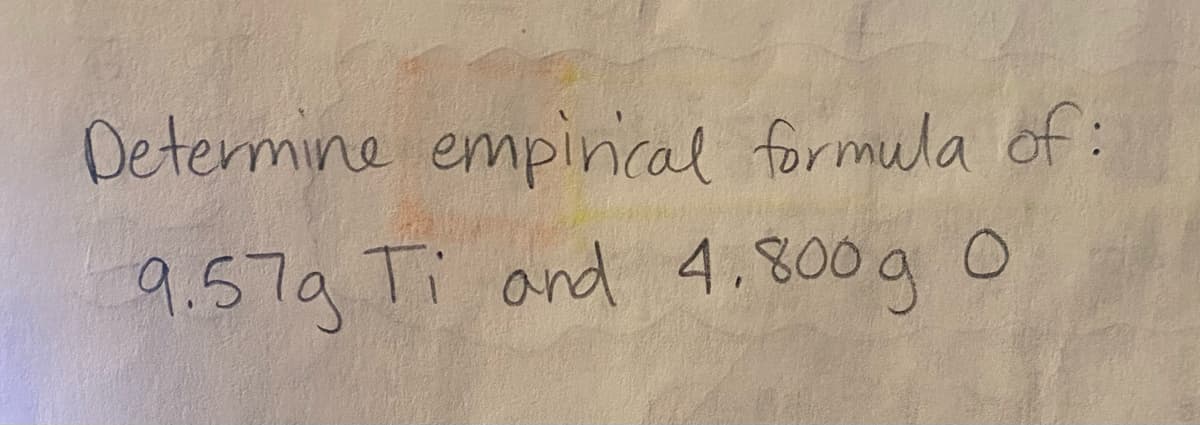 Determine empirical formula of:
9.57g Ti and 4.800g O